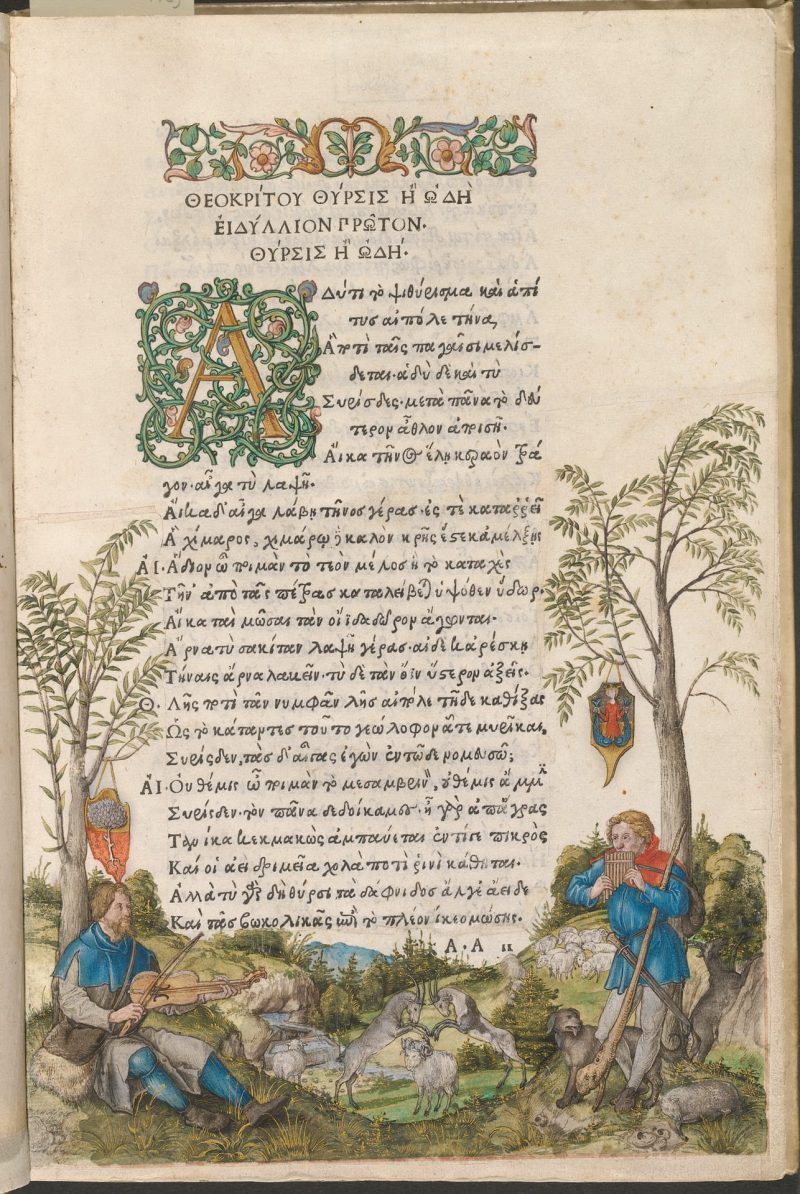 ΘΕΟΚΡΊΤΟΥ ΘΎΡΣΙΣ Ἢ ὨΔῊ
ἘΙΔΎΛΛΙΟΝ ΠΡΩ͂ΤΟΝ.
ΘΎΡΣΙΣ Ἢ ὨΔΉ.
Α Δύ τι τὸ ψιθύρισμα καὶ ἁ πί
τυς αἰπόλε τήνα,
Ἃ ποτὶ ταῖς παγαῖσι μελίσ-
δεται· ἁδὺ δὲ καὶ τὺ
Συρίσδες· μετὰ πᾶνα τὸ δεύ
τερον ἆθλον ἀποισῇ.
Αἴκα τῆνος ἕλῃ κεραὸν τρά
γον· αἶγα τὺ λαψῇ.
Αἴκα δ' αἶγα λάβῃ τῆνος γέρας· ἐς τὲ καταῤῥεῖ
Ἁ χίμαρος, χιμάρῳ δὲ καλὸν κρῆς ἔς τε κ' ἀμέλξῃς
ΑΙ. Ἅδιον ὦ ποιμὰν τὸ τεὸν μέλος ἢ τὸ καταχὲς
Τῆν' ἀπὸ τᾶς πέτρας καταλείβεται ὑψόθεν ὕδωρ.
Αἴκα ταὶ μῶσαι τὰν οἴϊδα δῶρον ἄγωνται.
Ἄρνα τὺ σακίταν λαψῇ γέρας· αἰ δέ κ' ἀρέσκῃ
Τήναις ἄρνα λαβεῖν· τὺ δὲ τὰν ὄϊν ὕστερον ἀξεῖς.
Θ. Λῇς ποτὶ τᾶν νυμφᾶν λῇς αἰπόλε τῇδε καθίξας
Ὡς τὸ κάταντες τοῦτο γεώλοφον ᾇτε μυρῖκαι,
Συρίσδεν, τὰς δ' αἶγας ἐγὼν ἐν τῷδε νομευσῶ;
ΑΙ. Οὐ θέμις ὦ ποιμὰν τὸ μεσαμβρινὸν, οὐ θέμις ἄμμιν
Συρίσδεν· τὸν πᾶνα δεδοίκαμες· ἦ γὰρ ἀπ' ἄγρας
Τανίκα κεκμακὼς ἀμπαύεται ἐντί γε πικρὸς
Καὶ οἱ ἀεὶ δριμεῖα χολὰ ποτὶ ῥινὶ κάθηται.
Ἀλλὰ τὺ γὰρ δὴ θύρσι τὰ δάφνιδος ἄλγε' ἄειδε
Καὶ τᾶς βωκολικᾶς ἐπὶ τὸ πλέον ἵκεο μώσης.
Α. Α ιι